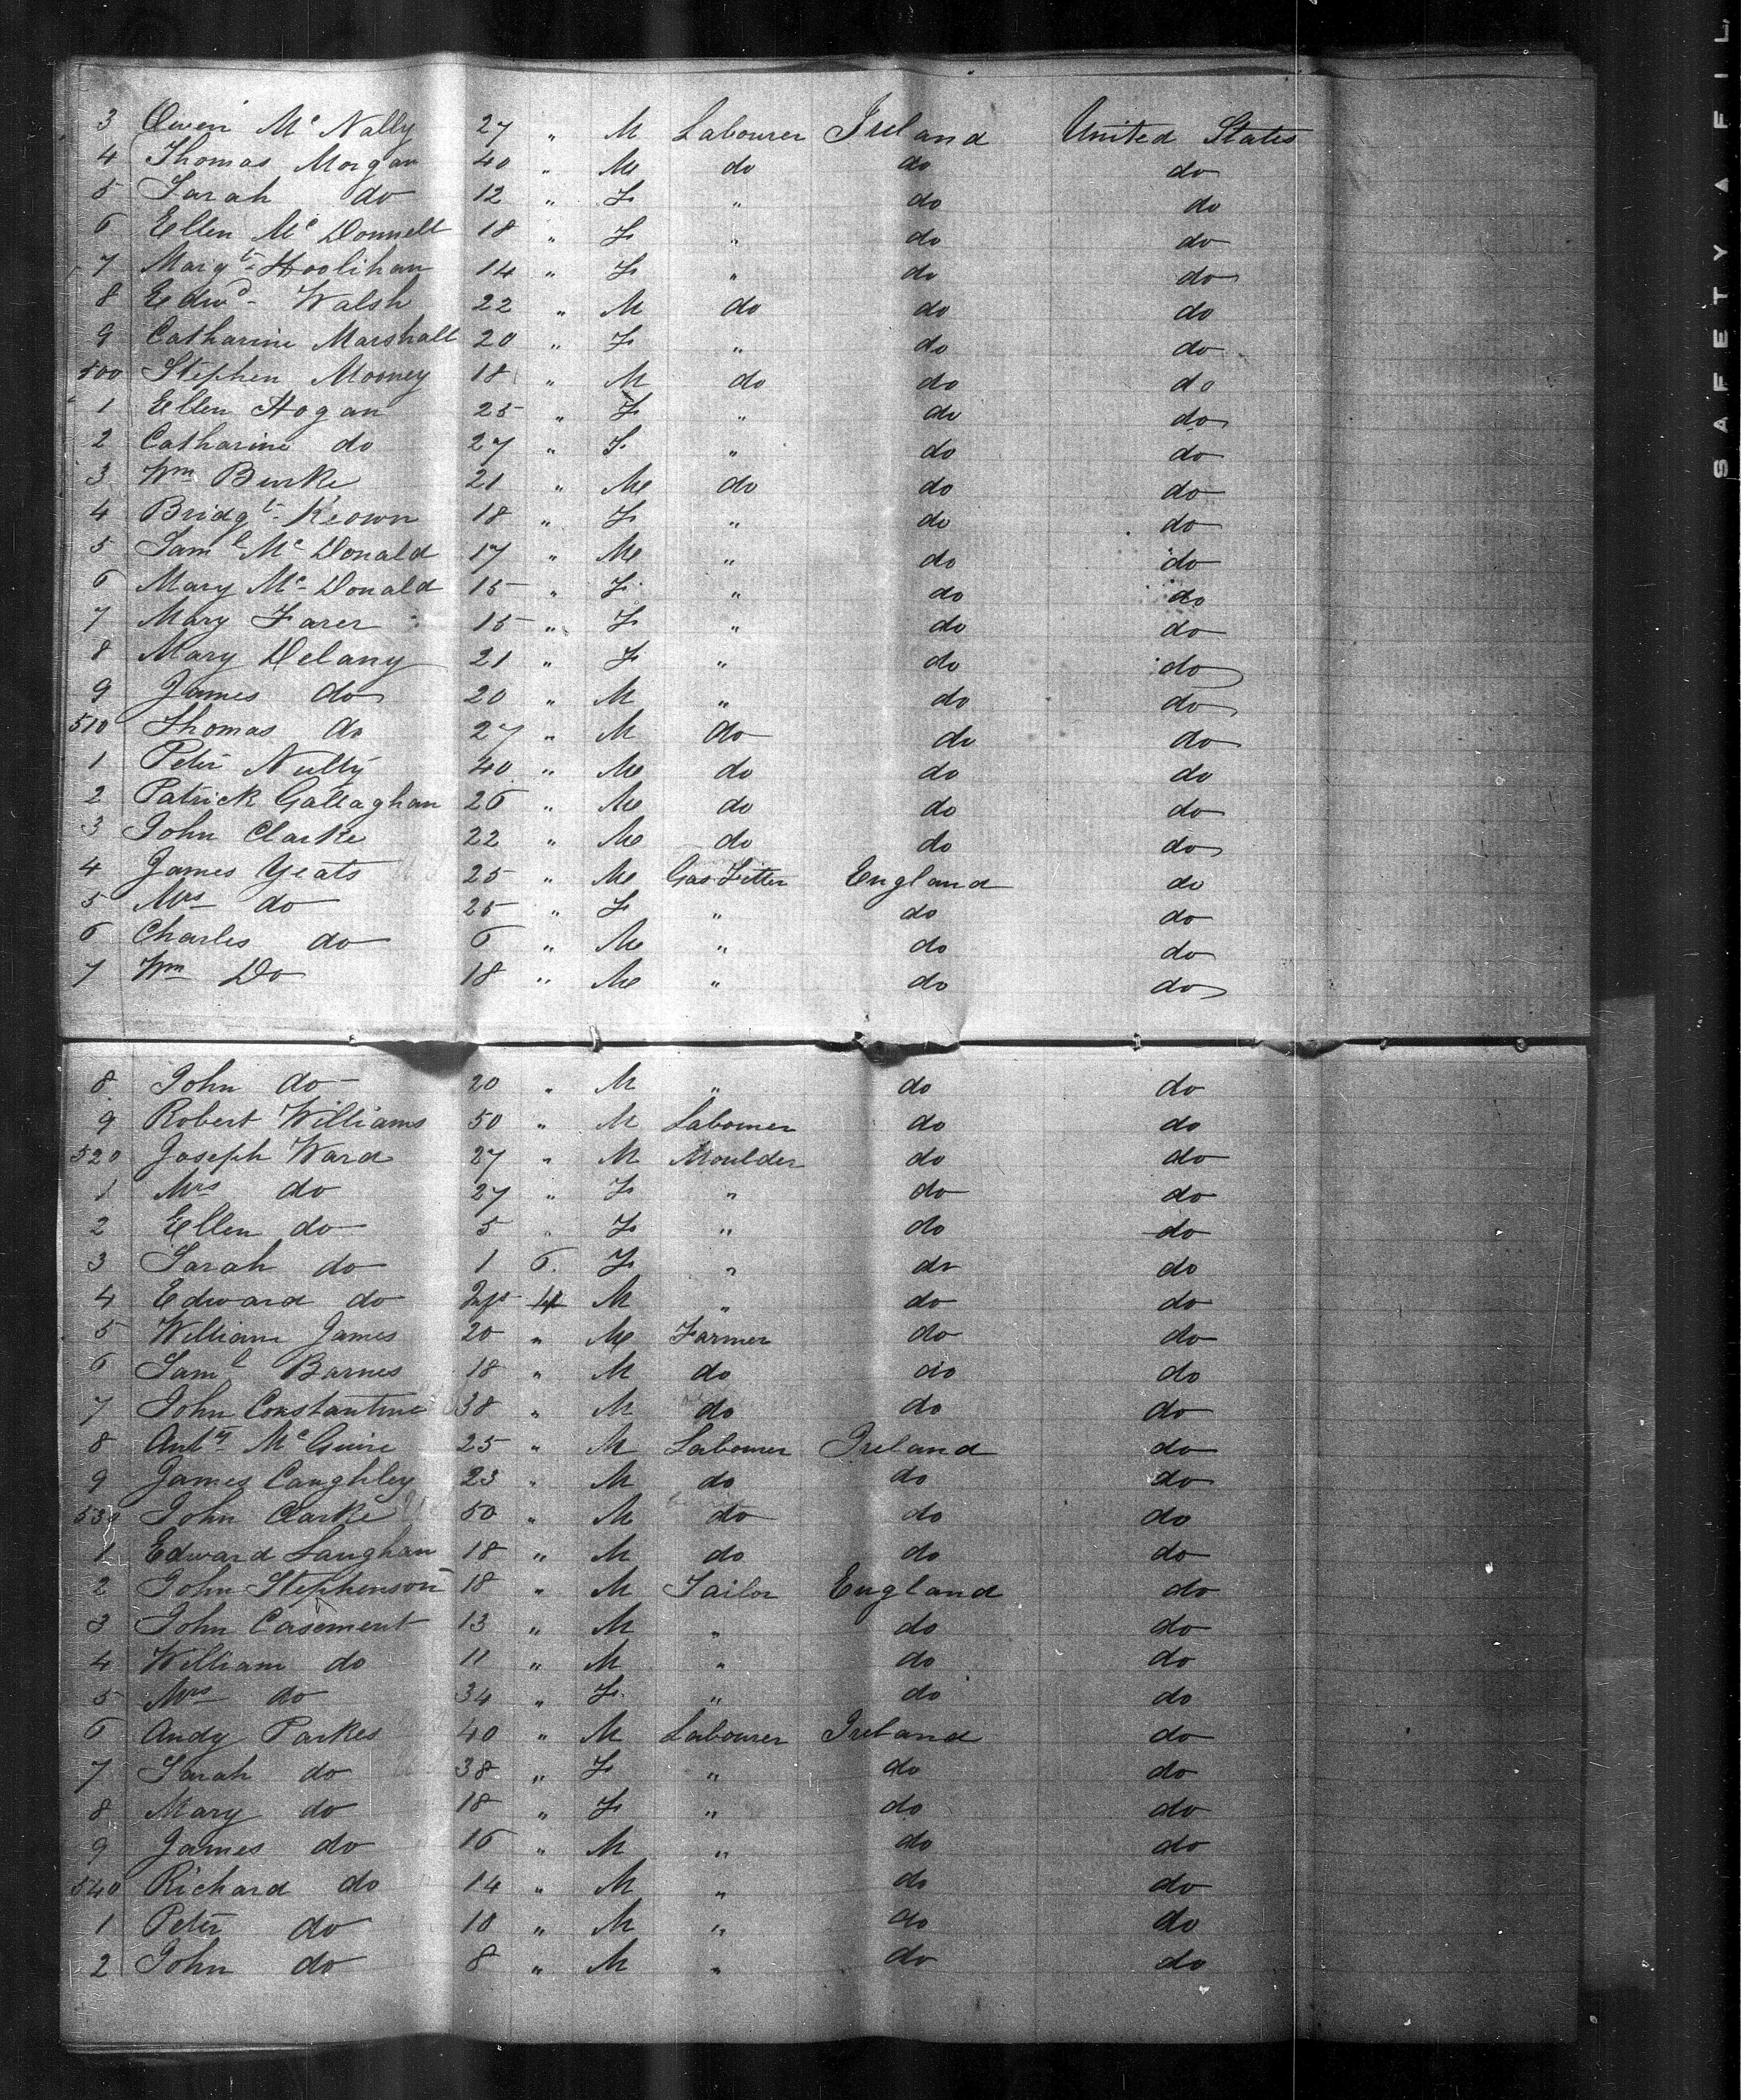 3 Owen Mc Nally 27 " M Labourer Ireland United States
4 Thomas Morgan 40 " M do do do
5 Sarah do 12 " F " do do
6 Ellen Mc Donnell 18 " F " do do
7 Margt Hoolihan 14 " F " do do
8 Edwd Walsh 22 " M do do do
9 Catharine Marshall 20 " F " do do
500 Stephen Mooney 18 " M do do do
1 Ellen Hogan 25 " F " do do
2 Catharine do 27 " F " do do
3 Wm Burke 21 " M do do do
4 Bridgt Keown 18 " F " do do
5 Saml Mc Donald 17 " M " do do
6 Mary Mc Donald 15 " F " do do
7 Mary Farer 15 " F " do do
8 Mary Delany 21 " F " do do
9 James do 20 " M " do do
510 Thomas do 27 " M do do do
1 Peter Nulty 40 " M do do do
2 Patrick Gallaghan 26 " M do do do
3 John Clarke 22 " M do do do
4 James Yeats 25 " M Gas Fitter England do
5 Mrs do 25 " F " do do
6 Charles do 6 " M " do do
7 Wm Do 18 " M " do do
8 John do 20 " M " do do
9 Robert Williams 50 " M Labourer do do
520 Joseph Ward 27 " M Moulder do do
1 Mrs do 27 " F " do do
2 Ellen do 5 " F " do do
3 Sarah do 1 6 F " do do
4 Edward do 4 M " do do
5 William James 20 " M Farmer do do
6 Saml Barnes 18 " M do do do
7 John Constantine 38 " M do do do
8 Anty Mc Guire 25 " M Labourer Ireland do
9 James Caughley 23 " M do do do
530 John Clarke 50 " M do do do
1 Edward Laughan 18 " M do do do
2 John Stephenson 18 " M Tailor England do
3 John Casement 13 " M " do do
4 William do 11 " M " do do
5 Mrs do 34 " F " do do
6 Andy Parkes 40 " M Labourer Ireland do
7 Sarah do 38 " F " do do
8 Mary do 18 " F " do do
9 James do 16 " M " do do
540 Richard do 14 " M " do do
1 Peter do 10 " M " do do
2 John do 8 " M " do do
SAFETY FIL